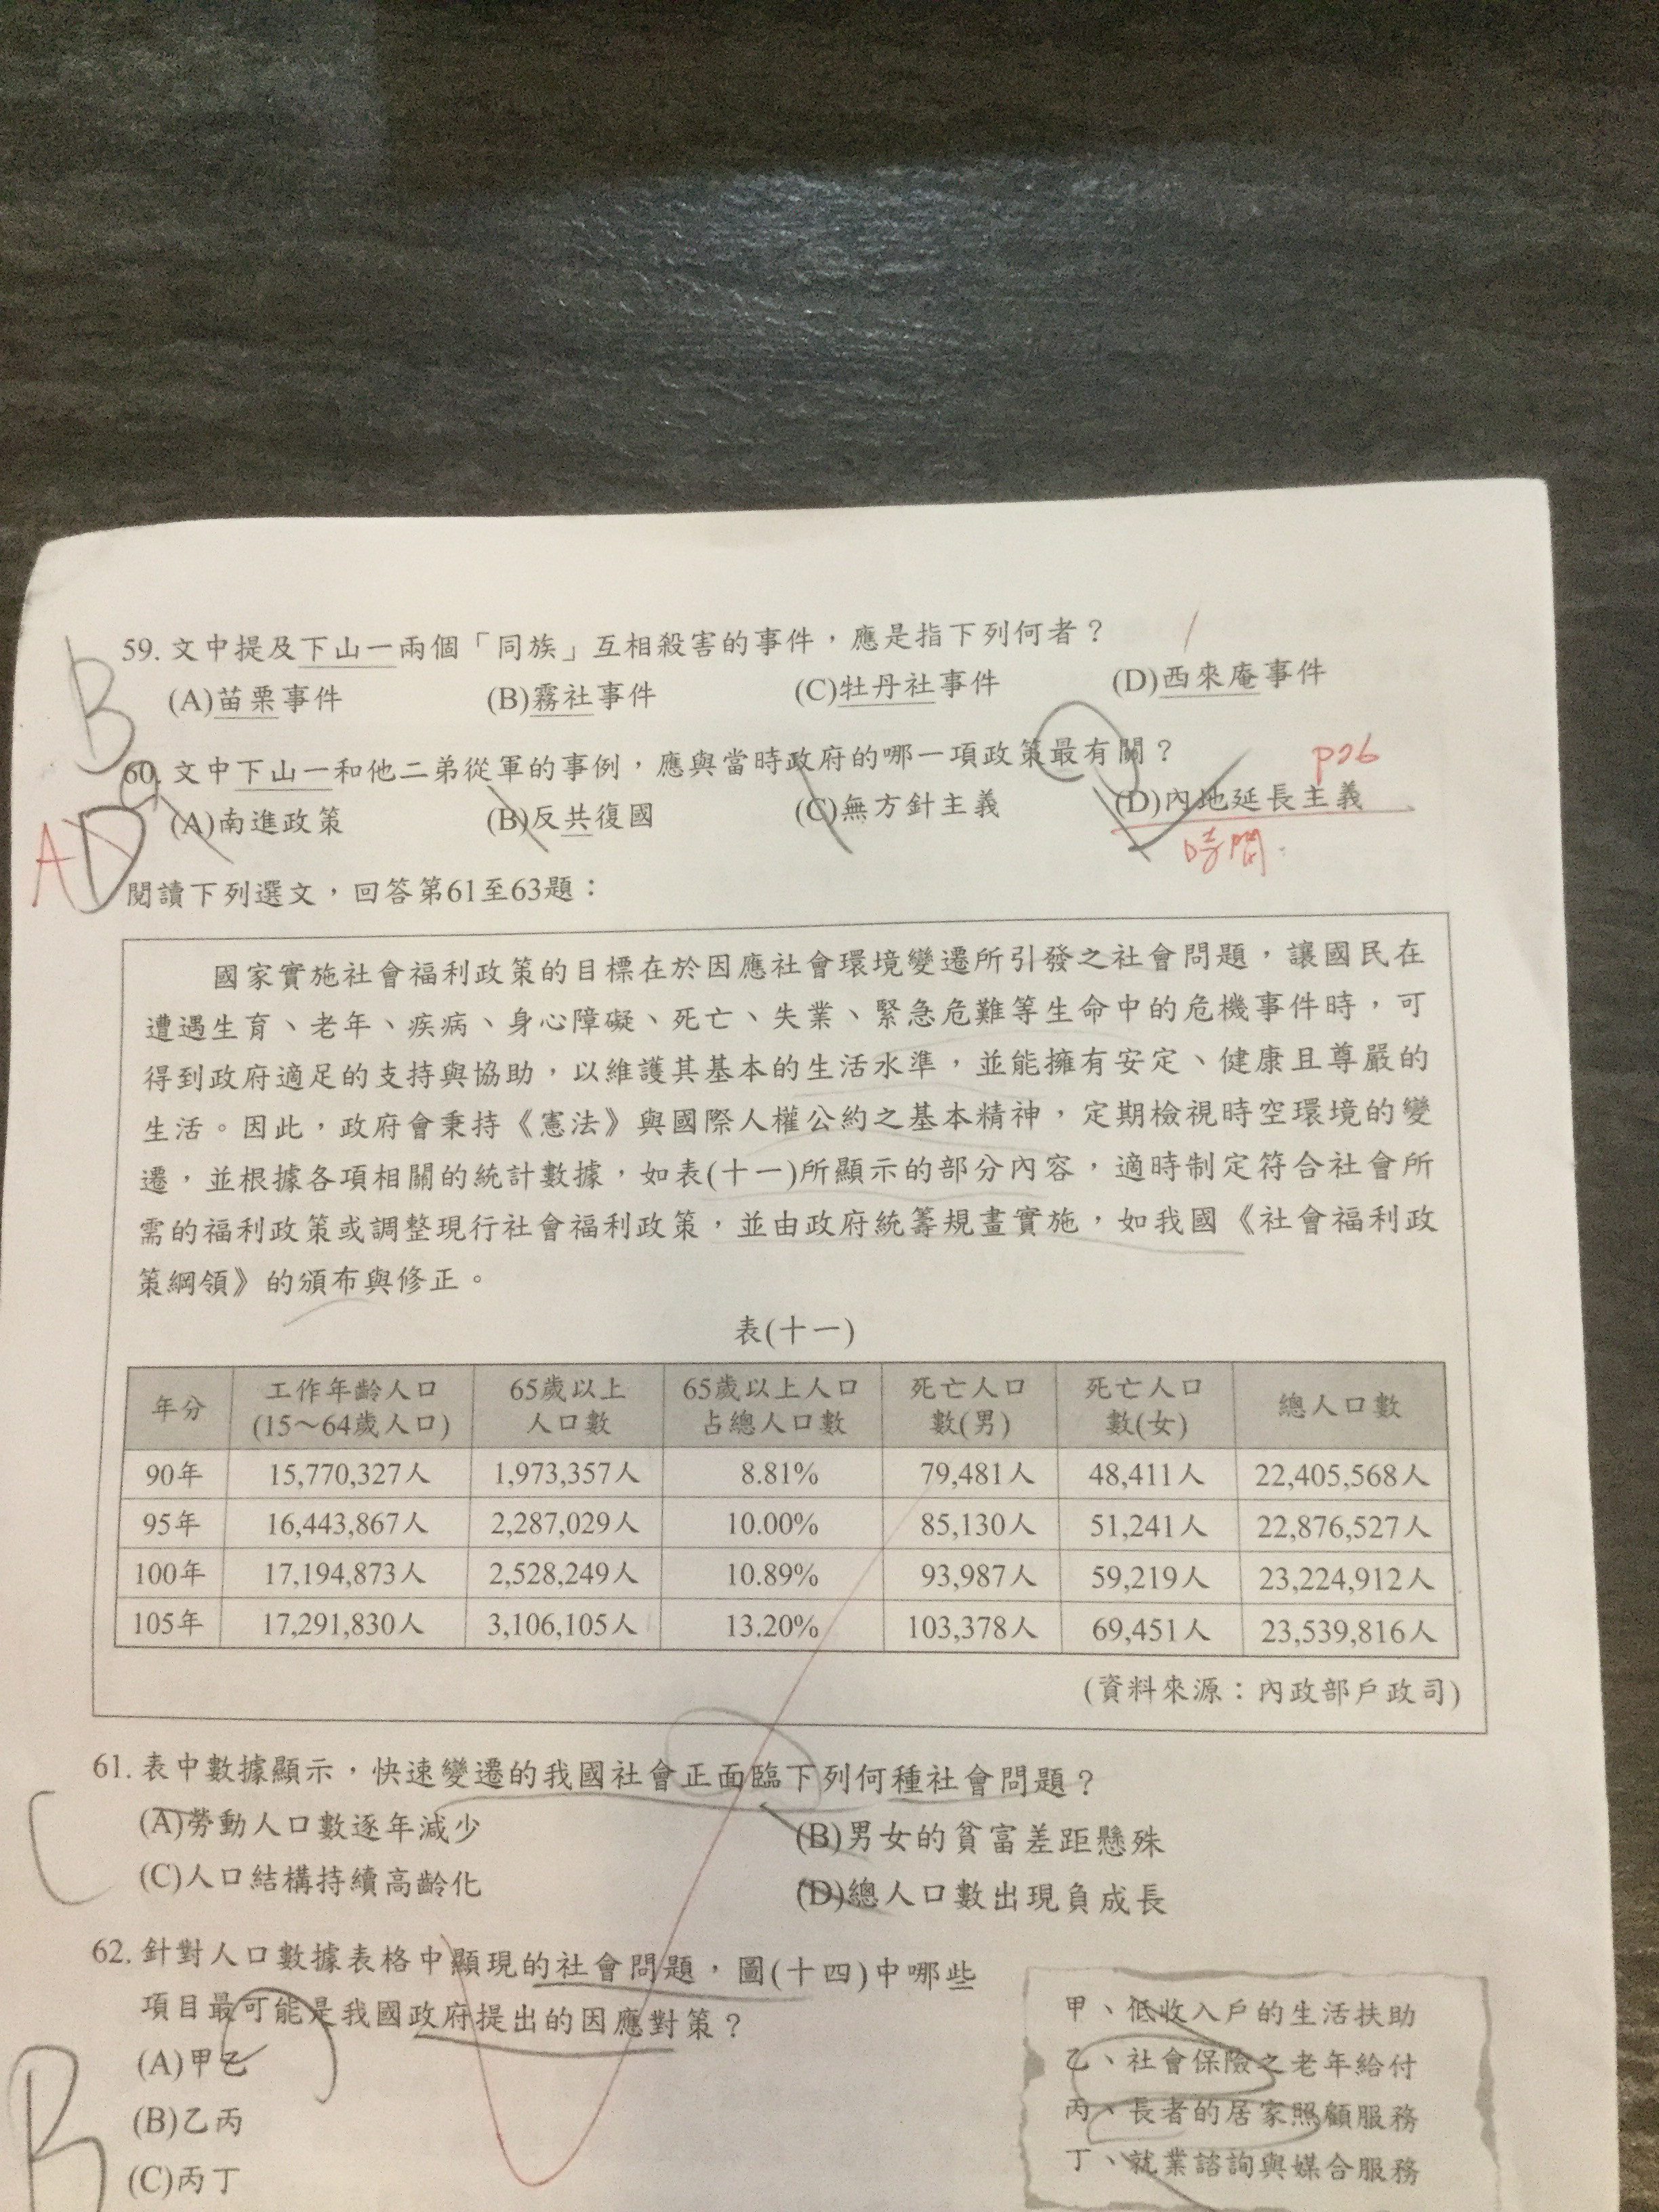 59. 文中提及下山一兩個「同族」互相殺害的事件，應是指下列何者？
(A)苗栗事件 (B)霧社事件 (C)牡丹社事件 (D)西來庵事件
B
60. 文中下山一和他二弟從軍的事例，應與當時政府的哪一項政策最有關？
P26
(A)南進政策 (B)反共復國 (C)無方針主義 (D)內地延長主義
A D
時間
閱讀下列選文，回答第61至63題：
國家實施社會福利政策的目標在於因應社會環境變遷所引發之社會問題，讓國民在
遭遇生育、老年、疾病、身心障礙、死亡、失業、緊急危難等生命中的危機事件時，可
得到政府適足的支持與協助，以維護其基本的生活水準，並能擁有安定、健康且尊嚴的
生活。因此，政府會秉持《憲法》與國際人權公約之基本精神，定期檢視時空環境的變
遷，並根據各項相關的統計數據，如表(十一)所顯示的部分內容，適時制定符合社會所
需的福利政策或調整現行社會福利政策，並由政府統籌規畫實施，如我國《社會福利政
策綱領》的頒布與修正。
表(十一)
年分 工作年齡人口(15～64歲人口) 65歲以上人口數 65歲以上人口占總人口數 死亡人口數(男) 死亡人口數(女) 總人口數
90年 15,770,327人 1,973,357人 8.81% 79,481人 48,411人 22,405,568人
95年 16,443,867人 2,287,029人 10.00% 85,130人 51,241人 22,876,527人
100年 17,194,873人 2,528,249人 10.89% 93,987人 59,219人 23,224,912人
105年 17,291,830人 3,106,105人 13.20% 103,378人 69,451人 23,539,816人
(資料來源：內政部戶政司)
61. 表中數據顯示，快速變遷的我國社會正面臨下列何種社會問題？
(A)勞動人口數逐年減少 (B)男女的貧富差距懸殊
C
(C)人口結構持續高齡化 (D)總人口數出現負成長
62. 針對人口數據表格中顯現的社會問題，圖(十四)中哪些
項目最可能是我國政府提出的因應對策？
(A)甲乙
(B)乙丙
(C)丙丁
B
甲、低收入戶的生活扶助
乙、社會保險之老年給付
丙、長者的居家照顧服務
丁、就業諮詢與媒合服務